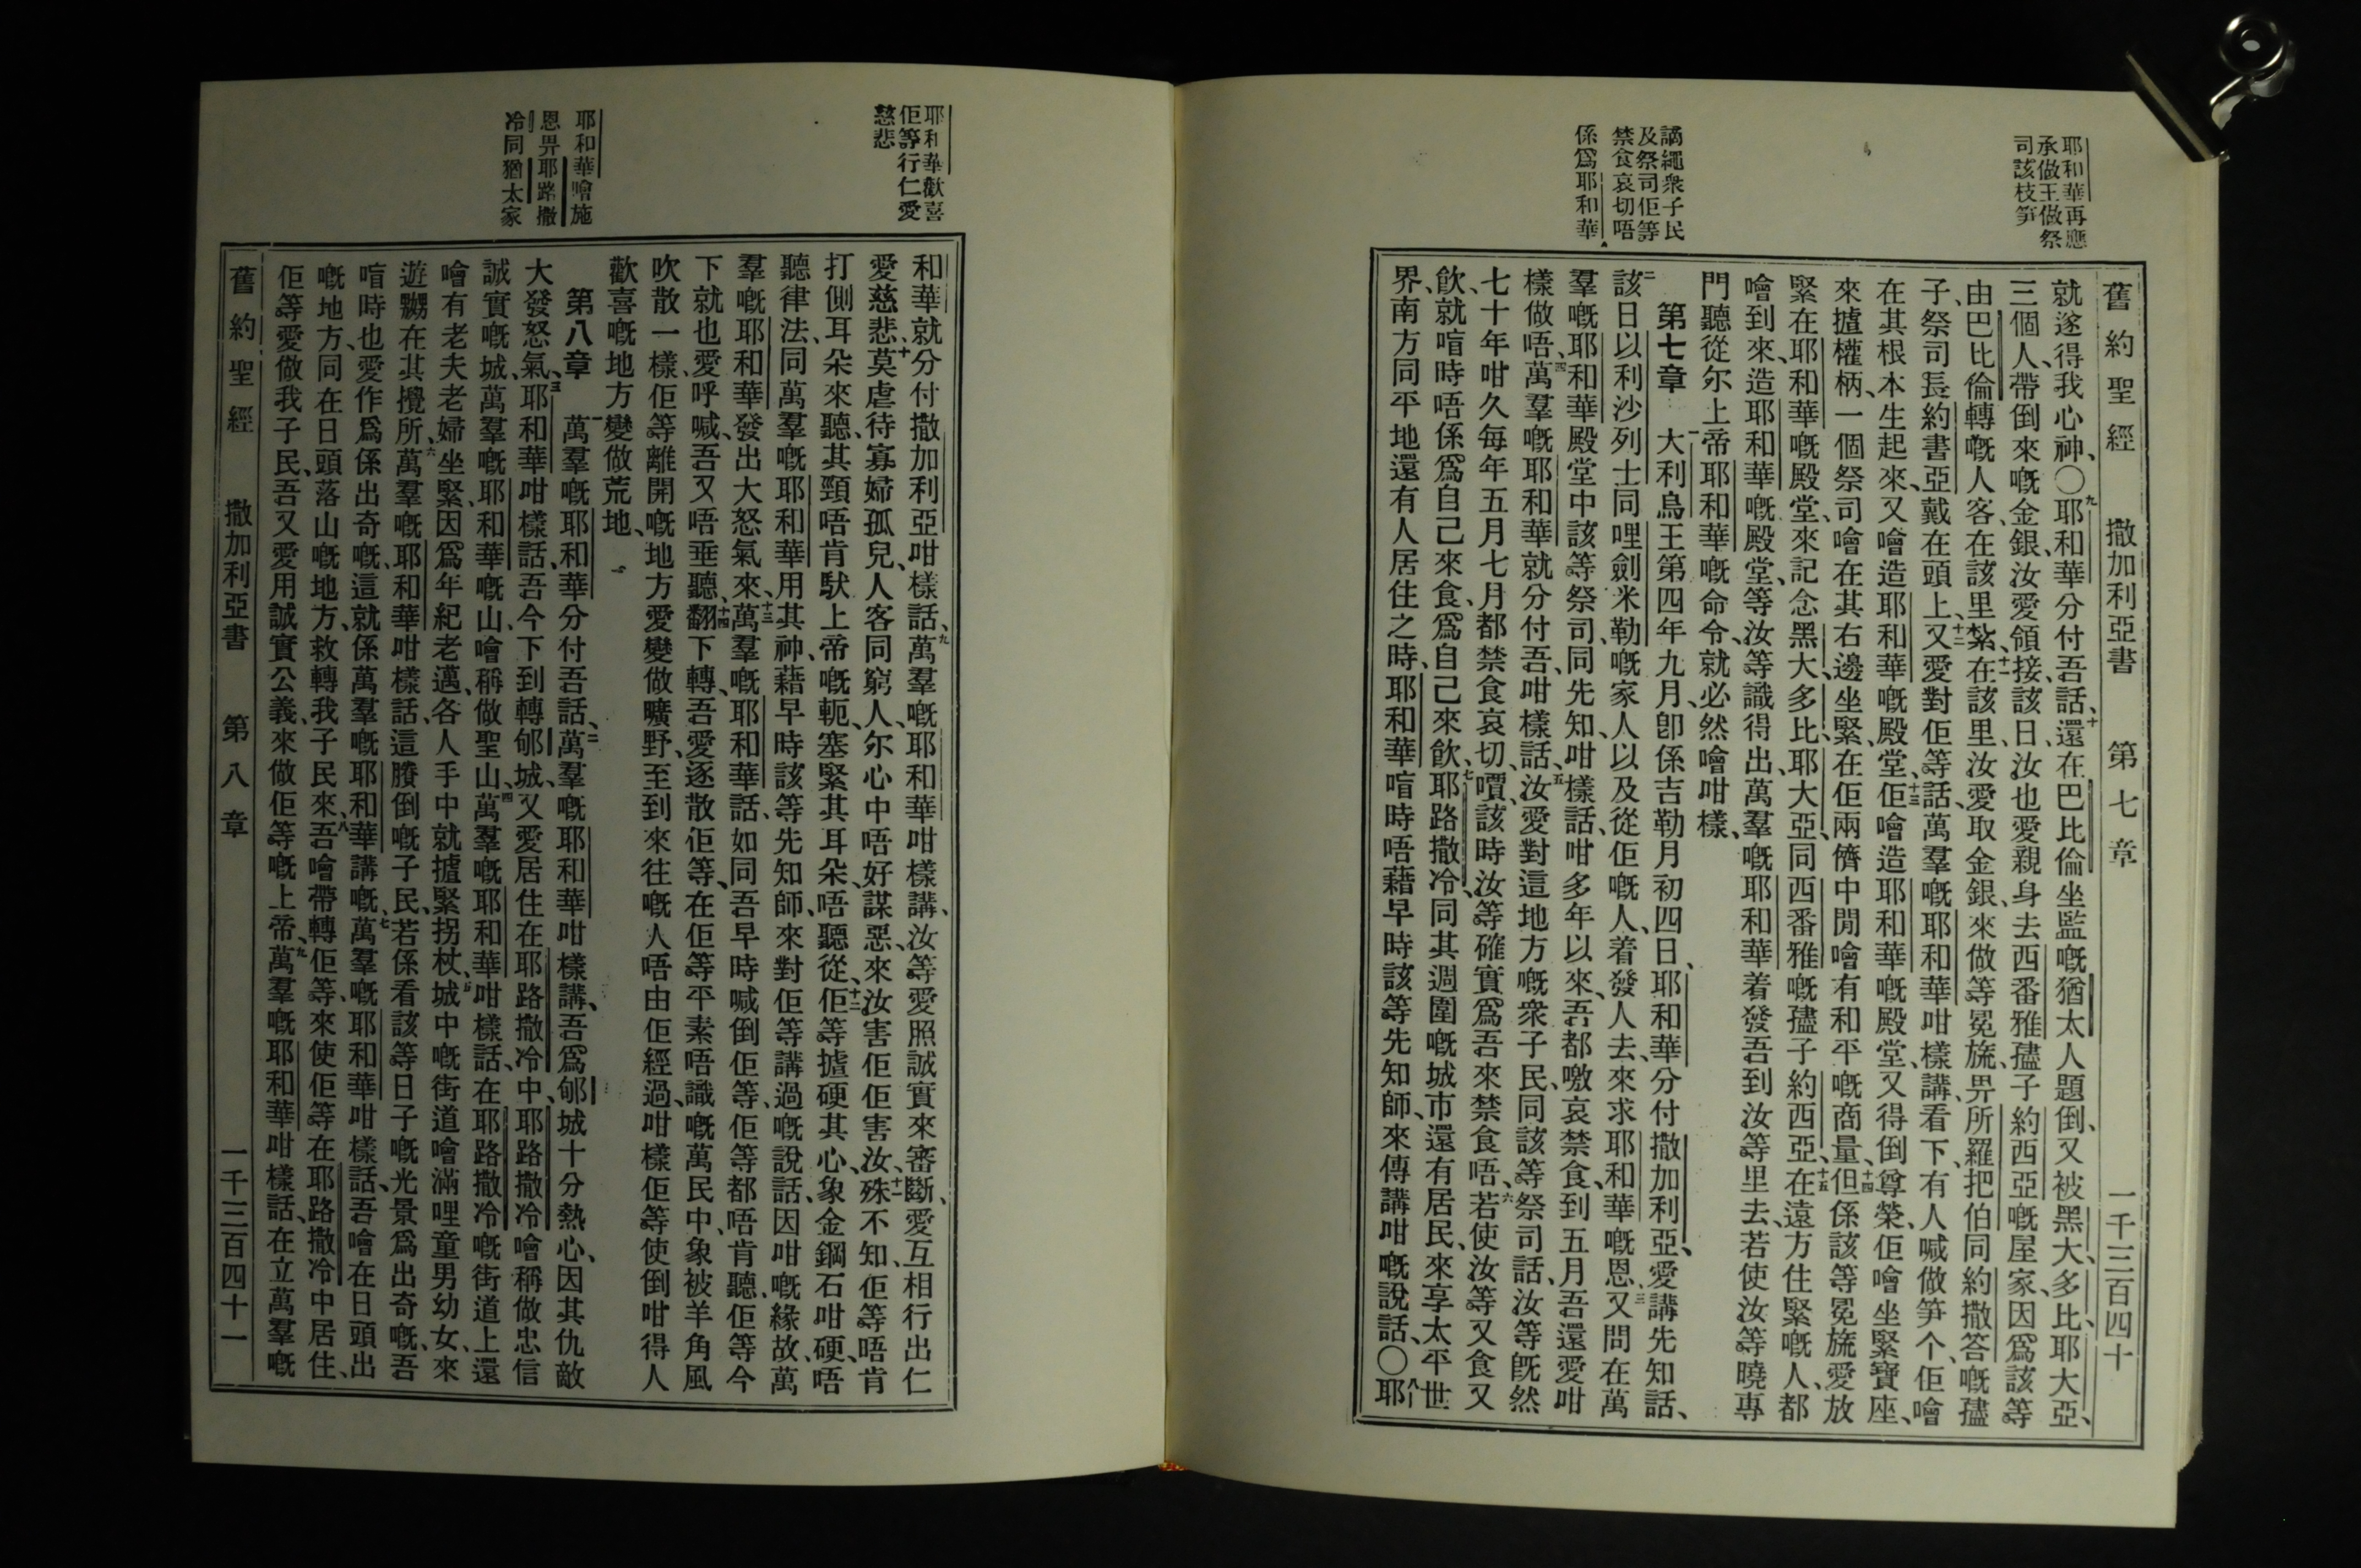 耶和華再應
承做王做祭
司該枝笋
謫繩衆子民
及祭司佢等
禁食哀切唔
係爲耶和華
舊約聖經 撒加利亞書 第七章 一千三百四十
就遂得我心神、〇九耶和華分付吾話、十還在巴比倫坐監嘅猶太人題倒、又被黑大、多比、耶大亞、
三個人、帶倒來嘅金銀、汝愛領接、該日、汝也愛親身去西番雅孻子約西亞嘅屋家、因爲該等
由巴比倫轉嘅人客、在該里紮、在該里、十一汝愛取金銀、來做等冕旒、畀所羅把伯同約撒答嘅孻
子、祭司長約書亞戴在頭上、十二又愛對佢等話、萬羣嘅耶和華咁樣講、看下、有人喊做笋个、佢噲
在其根本生起來、又噲造耶和華嘅殿堂、十三佢噲造耶和華嘅殿堂、又得倒尊榮、佢噲坐緊寶座、
來攎權柄、一個祭司噲在其右邊坐緊、在佢兩儕中閒噲有和平嘅商量、十四但係該等冕旒、愛放
緊在耶和華嘅殿堂、來記念黑大、多比、耶大亞、同西番雅嘅孻子約西亞、十五在遠方住緊嘅人、都
噲到來、造耶和華嘅殿堂、等汝等識得出、萬羣嘅耶和華着發吾到汝等里去、若使汝等曉專
門聽從尔上帝耶和華嘅命令、就必然噲咁樣、
第七章 一大利烏王第四年九月、卽係吉勒月初四日、耶和華分付撒加利亞、愛講先知話、
二該日以利沙列士同哩劍米勒嘅家人以及從佢嘅人、着發人去、來求耶和華嘅恩、三又問在萬
羣嘅耶和華殿堂中該等祭司、同先知咁樣話、咁多年以來、吾都噭哀禁食、到五月吾還愛咁
樣做唔、四萬羣嘅耶和華就分付吾、咁樣話、五汝愛對這地方嘅衆子民、同該等祭司話、汝等旣然
七十年咁久每年五月七月都禁食哀切、嘪該時汝等確實爲吾來禁食唔、六若使汝等又食又
飮、就喧時唔係爲自己來食、爲自己來飮、七耶路撒冷、同其週圍嘅城市還有居民、來享太平世
界、南方同平地還有人居住之時、耶和華喧時唔藉早時該等先知師、來傳講咁嘅說話、〇八耶
耶和華歡喜
佢等行仁愛
慈悲
耶和華噲施
恩畀耶路撒
冷同猶太家
和華就分付撒加利亞咁樣話、九萬羣嘅耶和華咁樣講、汝等愛照誠實來審斷、愛互相行出仁
愛慈悲、十莫虐待寡婦孤兒、人客同窮人、尔心中唔好謀惡、來汝害佢佢害汝、十一殊不知、佢等唔肯
打側耳朵來聽、其頸唔肯馱上帝嘅軛、塞緊其耳朵、唔聽從、十二佢等攎硬其心、象金鋼石咁硬、唔
聽律法、同萬羣嘅耶和華用其神、藉早時該等先知師、來對佢等講過嘅說話、因咁嘅緣故、萬
羣嘅耶和華、發出大怒氣來、十三萬羣嘅耶和華話、如同吾早時喊倒佢等、佢等都唔肯聽、佢等今
下就也愛呼喊、吾又唔垂聽、十四翻下轉、吾愛逐散佢等、在佢等平素唔識嘅萬民中、象被羊角風
吹散一樣、佢等離開嘅地方愛變做曠野、至到來往嘅人唔由佢經過、咁樣佢等使倒咁得人
歡喜嘅地方變做荒地、
第八章 一萬羣嘅耶和華分付吾話、二萬羣嘅耶和華咁樣講、吾爲郇城十分熱心、因其仇敵
大發怒氣、三耶和華咁樣話、吾今下到轉郇城、又愛居住在耶路撒冷中、耶路撒冷噲稱做忠信
誠實嘅城、萬羣嘅耶和華嘅山、噲稱做聖山、四萬羣嘅耶和華咁樣話、在耶路撒冷嘅街道上、還
噲有老夫老婦坐緊、因爲年紀老邁、各人手中就攎緊拐杖、五城中嘅街道噲滿哩童男幼女、來
遊嬲在其攪所、六萬羣嘅耶和華咁樣話、這賸倒嘅子民、若係看該等日子嘅光景爲出奇嘅、吾
喧時也愛作爲係出奇嘅、這就係萬羣嘅耶和華講嘅、七萬羣嘅耶和華咁樣話、吾噲在日頭出
嘅地方、同在日頭落山嘅地方、救轉我子民來、八吾噲帶轉佢等、來使佢等在耶路撒冷中居住、
佢等愛做我子民、吾又愛用誠實公義、來做佢等嘅上帝、九萬羣嘅耶和華咁樣話、在立萬羣嘅
舊約聖經 撒加利亞書 第八章 一千三百四十一